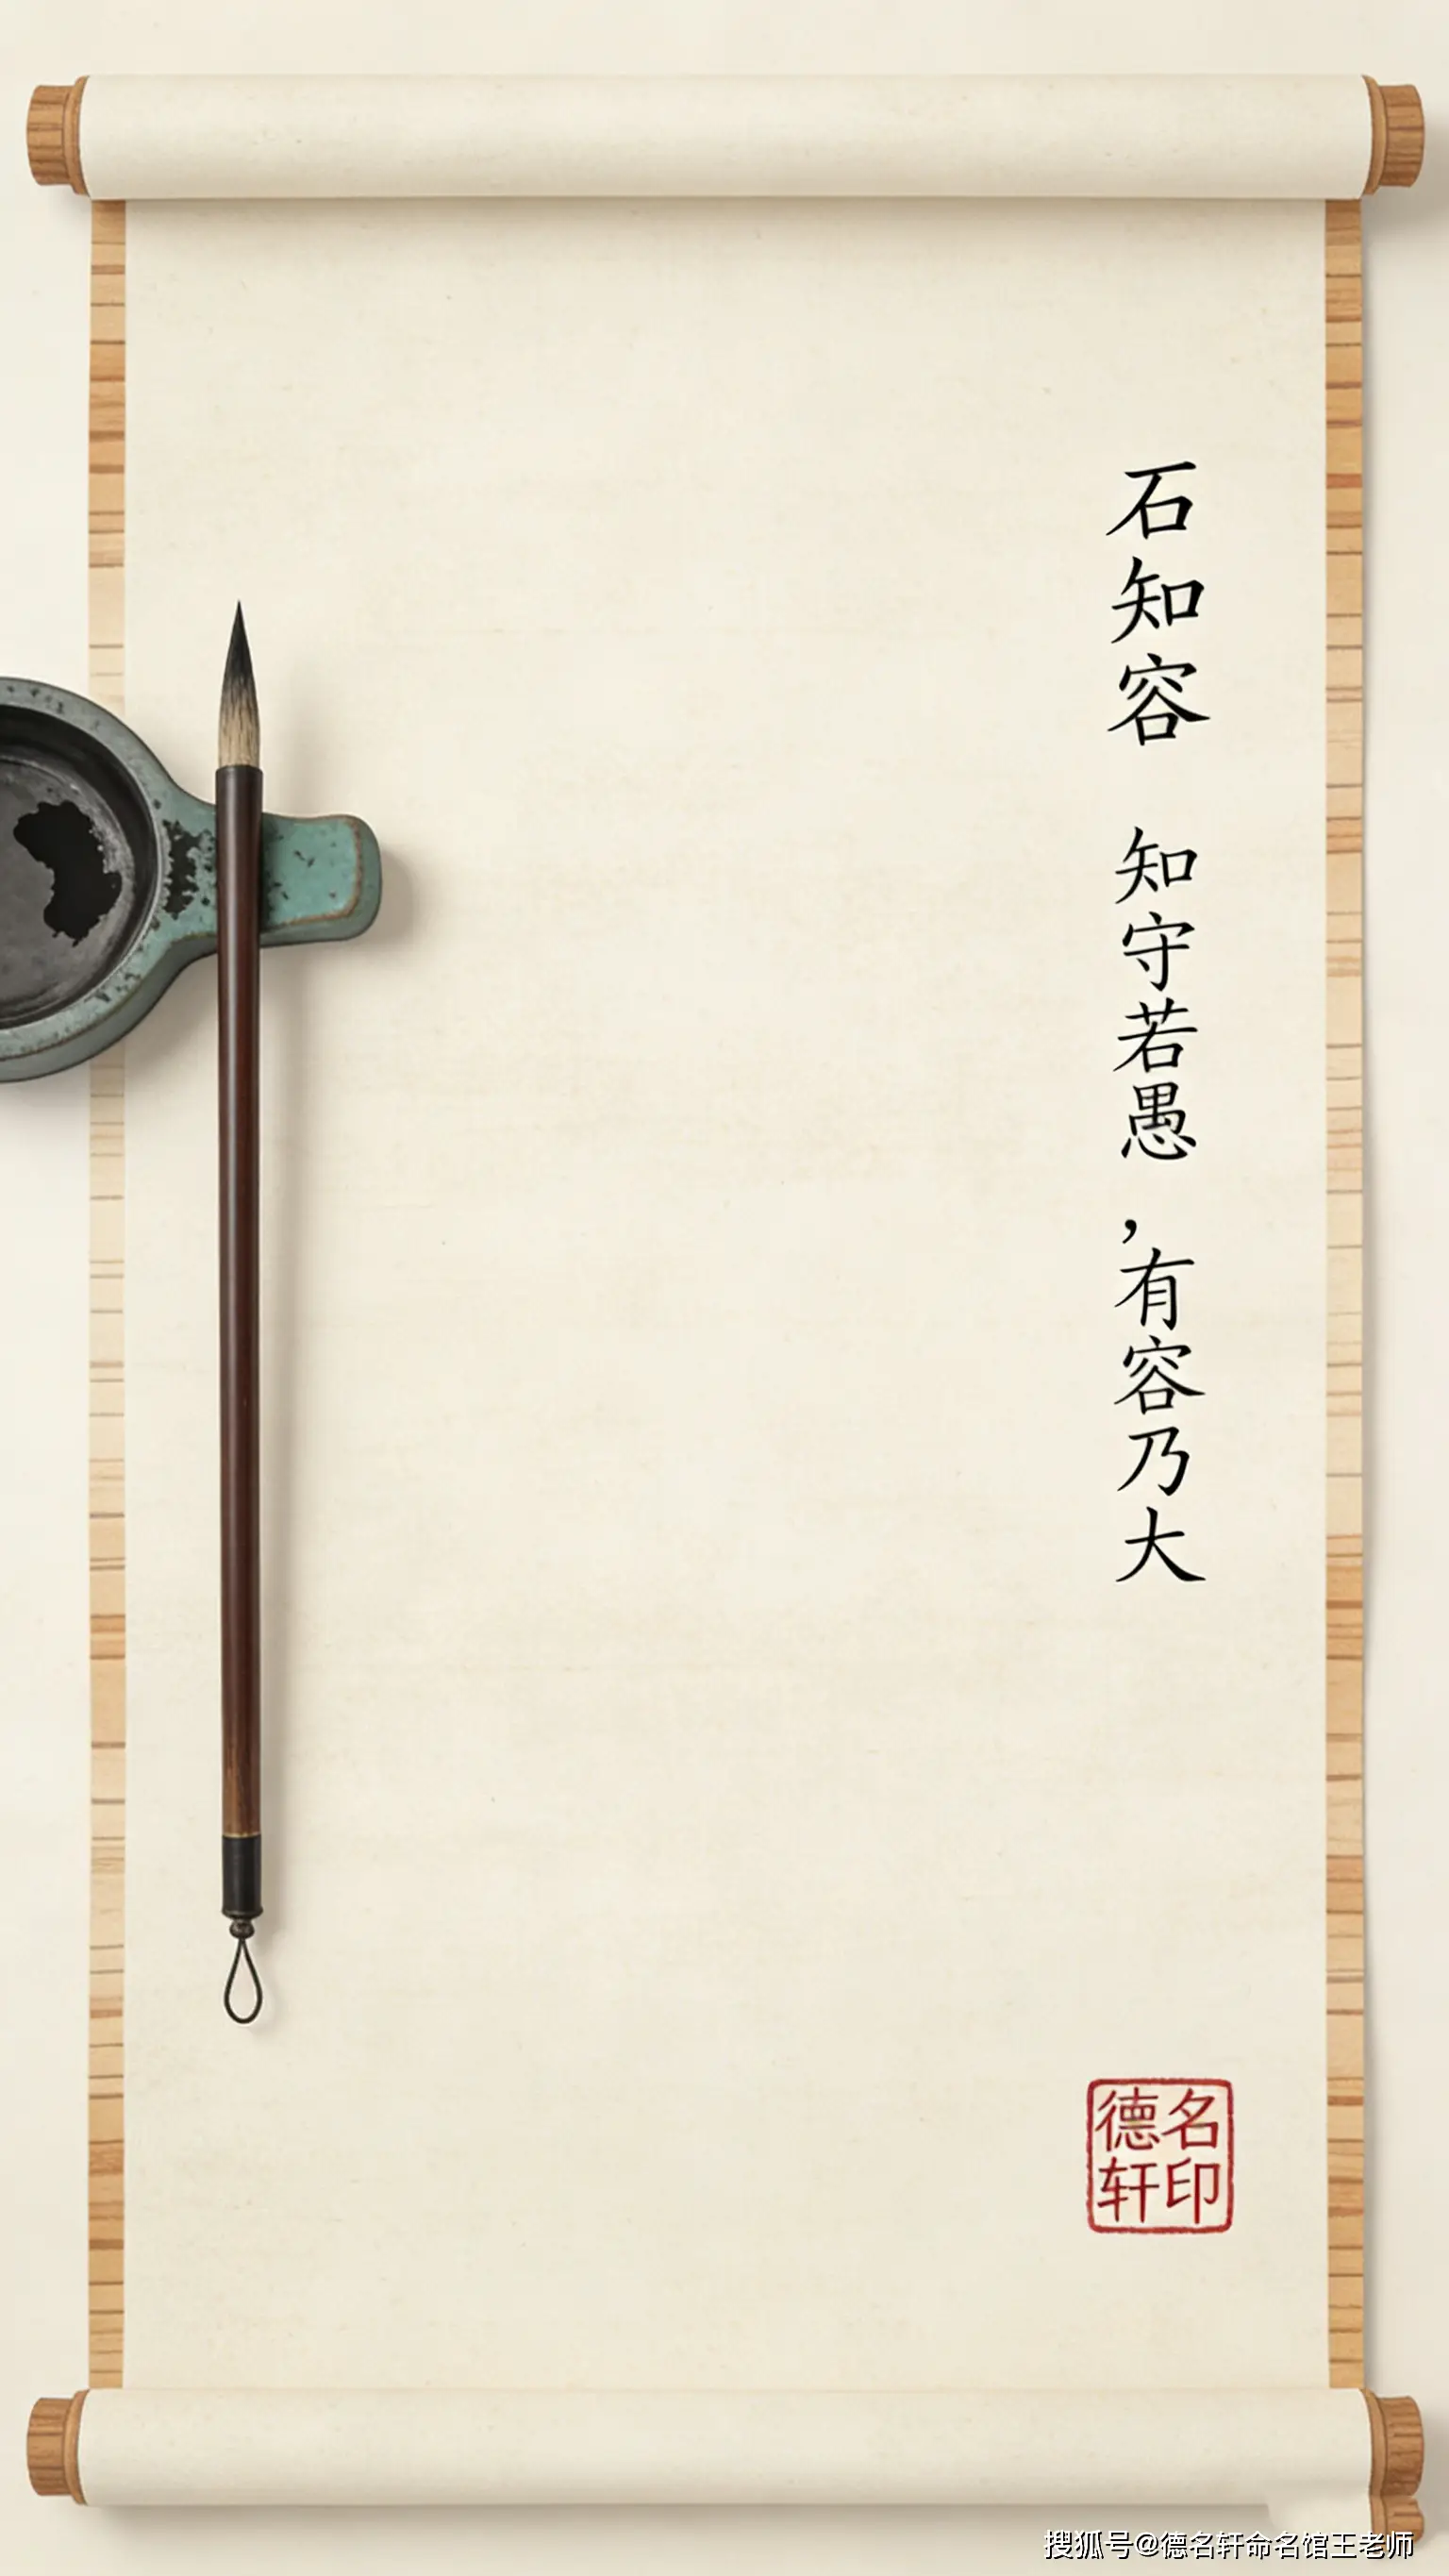 石知容 知守若愚，有容乃大
德名
轩印
搜狐号@德名轩命名馆王老师